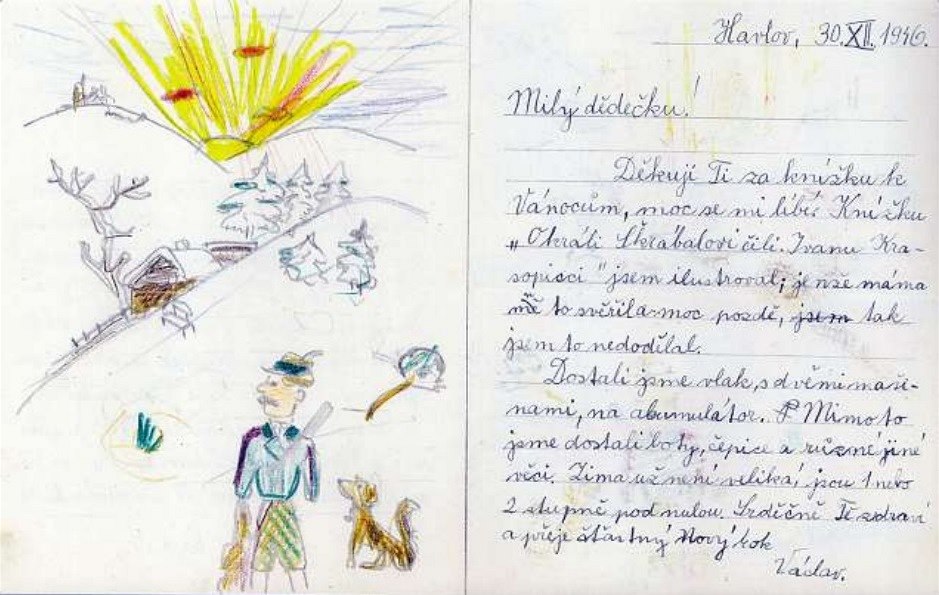 Havlov, 30.XII. 1946.
Milý dědečku!
Děkuji Ti za knížku k
Vánocům, moc se mi líbí. Knížku
„O králi Škrábalovi čili Ivanu Kra-
sopisci" jsem ilustroval; jenže máma
mě to svěřila moc pozdě, jsem tak
jsem to nedodělal.
Dostali jsme vlak, s dvěmi maši-
nami, na akumulátor. Mimo to
jsme dostali boty, čepice a různé jiné
věci. Zima už není veliká, jsou 1 nebo
2 stupně pod nulou. Srdečně Tě zdraví
a přeje šťastný Nový rok
Václav.